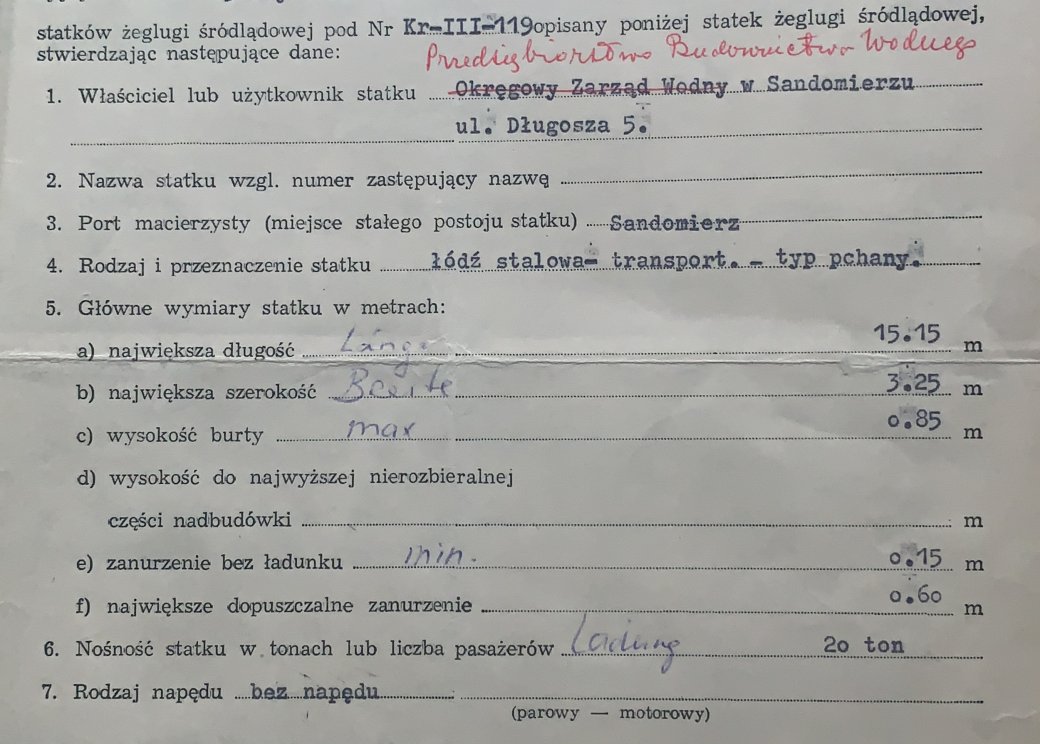 statków żeglugi śródlądowej pod Nr Kr-III-119 opisany poniżej statek żeglugi śródlądowej,
stwierdzając następujące dane:
Przedsiębiorstwo Budownictwa Wodnego
1. Właściciel lub użytkownik statku Okręgowy Zarząd Wodny w Sandomierzu
ul. Długosza 5.
2. Nazwa statku wzgl. numer zastępujący nazwę
3. Port macierzysty (miejsce stałego postoju statku) Sandomierz
4. Rodzaj i przeznaczenie statku łódź stalowa- transport. - typ pchany.
5. Główne wymiary statku w metrach:
a) największa długość Länge 15.15 m
b) największa szerokość Breite 3.25 m
c) wysokość burty max 0.85 m
d) wysokość do najwyższej nierozbieralnej
części nadbudówki m
e) zanurzenie bez ładunku min. 0.15 m
f) największe dopuszczalne zanurzenie 0.60 m
6. Nośność statku w tonach lub liczba pasażerów Ladung 20 ton
7. Rodzaj napędu bez napędu
(parowy — motorowy)